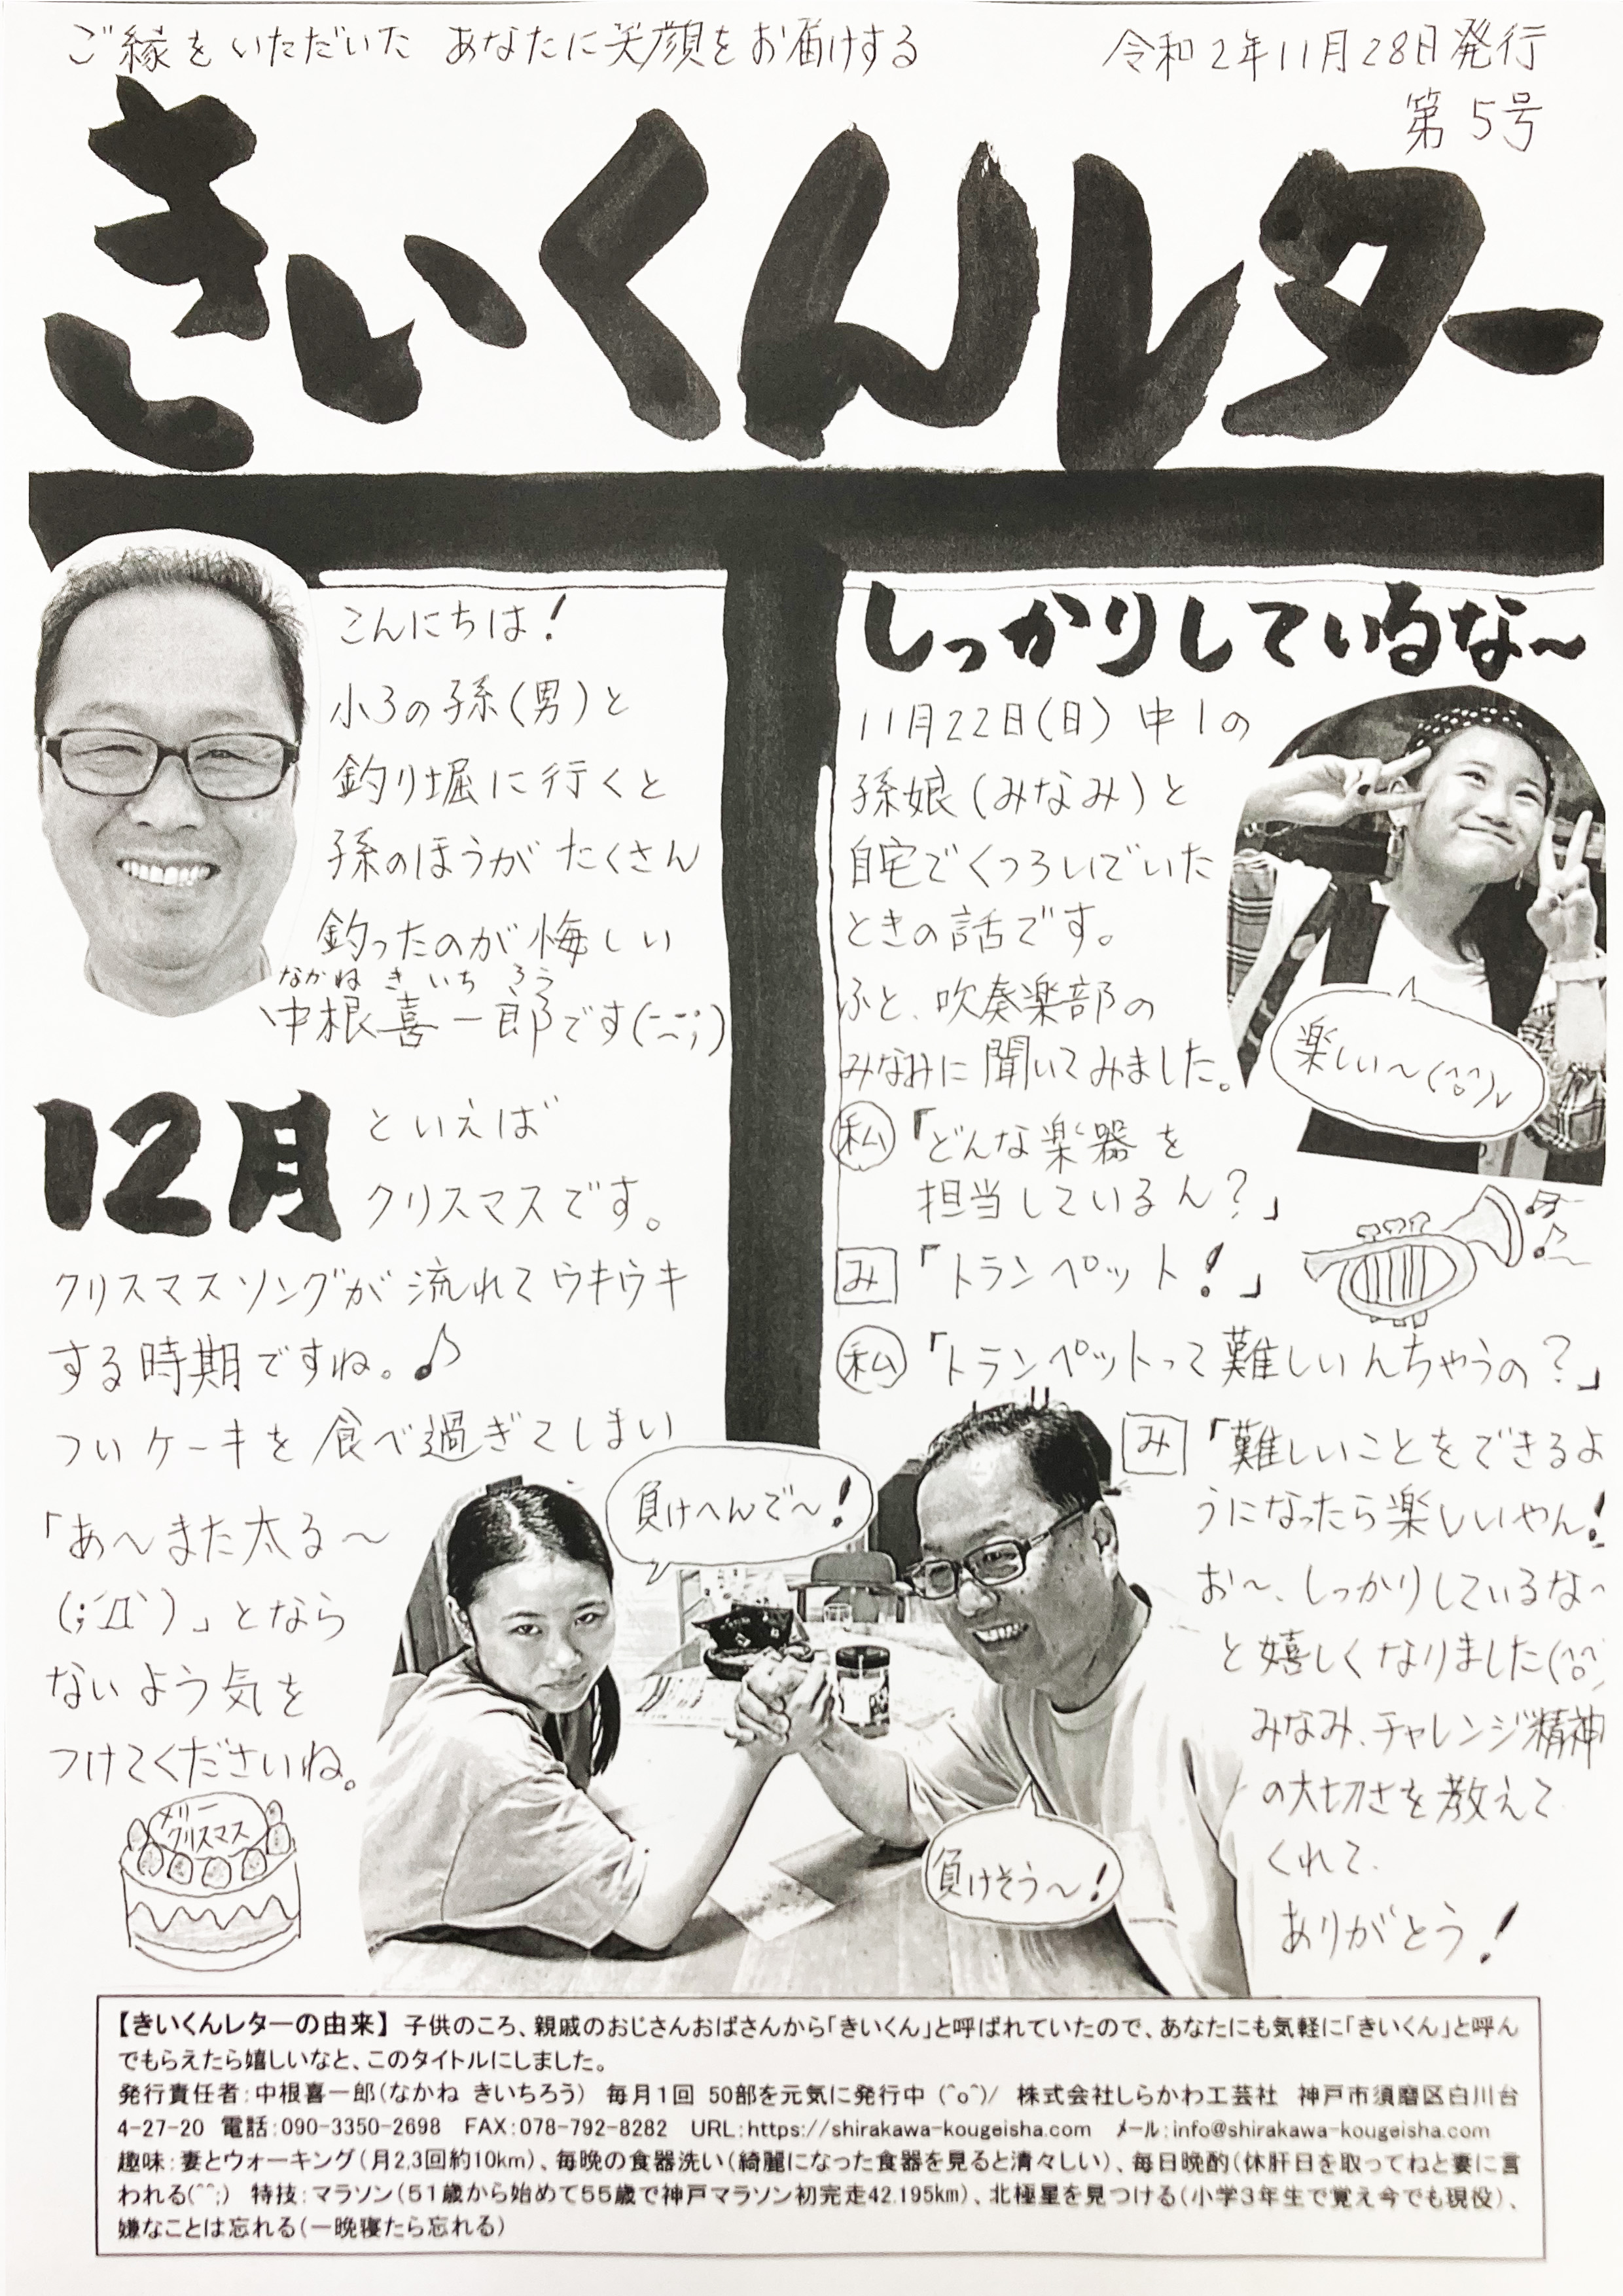 ご縁をいただいた あなたに笑顔をお届けする
令和2年11月28日発行
第5号
きいくんレター
こんにちは!
小3の孫(男)と
釣り堀に行くと
孫のほうが たくさん
釣ったのが悔しい
なかね きいちろう
中根喜一郎です(-_-;)
12月
といえば
クリスマスです。
クリスマスソングが流れてウキウキ
する時期ですね。♪
ついケーキを食べ過ぎてしまい
「あ〜また太る〜
(;´Д`)」となら
ないよう気を
つけてくださいね。
メリー
クリスマス
しっかりしているな〜
11月22日(日) 中1の
孫娘(みなみ)と
自宅でくつろいでいた
ときの話です。
ふと、吹奏楽部の
みなみに聞いてみました。
楽しい〜(^o^)v
私「どんな楽器を
担当しているん?」
み「トランペット!」
私「トランペットって難しいんちゃうの?」
み「難しいことをできるよ
うになったら楽しいやん!
お〜、しっかりしているな〜
と嬉しくなりました(^o^)
みなみ、チャレンジ精神
の大切さを教えて
くれて、
ありがとう!
負けへんで〜!
負けそう〜!
【きいくんレターの由来】 子供のころ、親戚のおじさんおばさんから「きいくん」と呼ばれていたので、あなたにも気軽に「きいくん」と呼ん
でもらえたら嬉しいなと、このタイトルにしました。
発行責任者:中根喜一郎(なかね きいちろう) 毎月1回 50部を元気に発行中 (^o^)/ 株式会社しらかわ工芸社 神戸市須磨区白川台
4-27-20 電話:090-3350-2698 FAX:078-792-8282 URL:https://shirakawa-kougeisha.com ﾒｰﾙ:info@shirakawa-kougeisha.com
趣味:妻とウォーキング(月2,3回約10km)、毎晩の食器洗い(綺麗になった食器を見ると清々しい)、毎日晩酌(休肝日を取ってねと妻に言
われる(^^;) 特技:マラソン(51歳から始めて55歳で神戸マラソン初完走42.195km)、北極星を見つける(小学3年生で覚え今でも現役)、
嫌なことは忘れる(一晩寝たら忘れる)